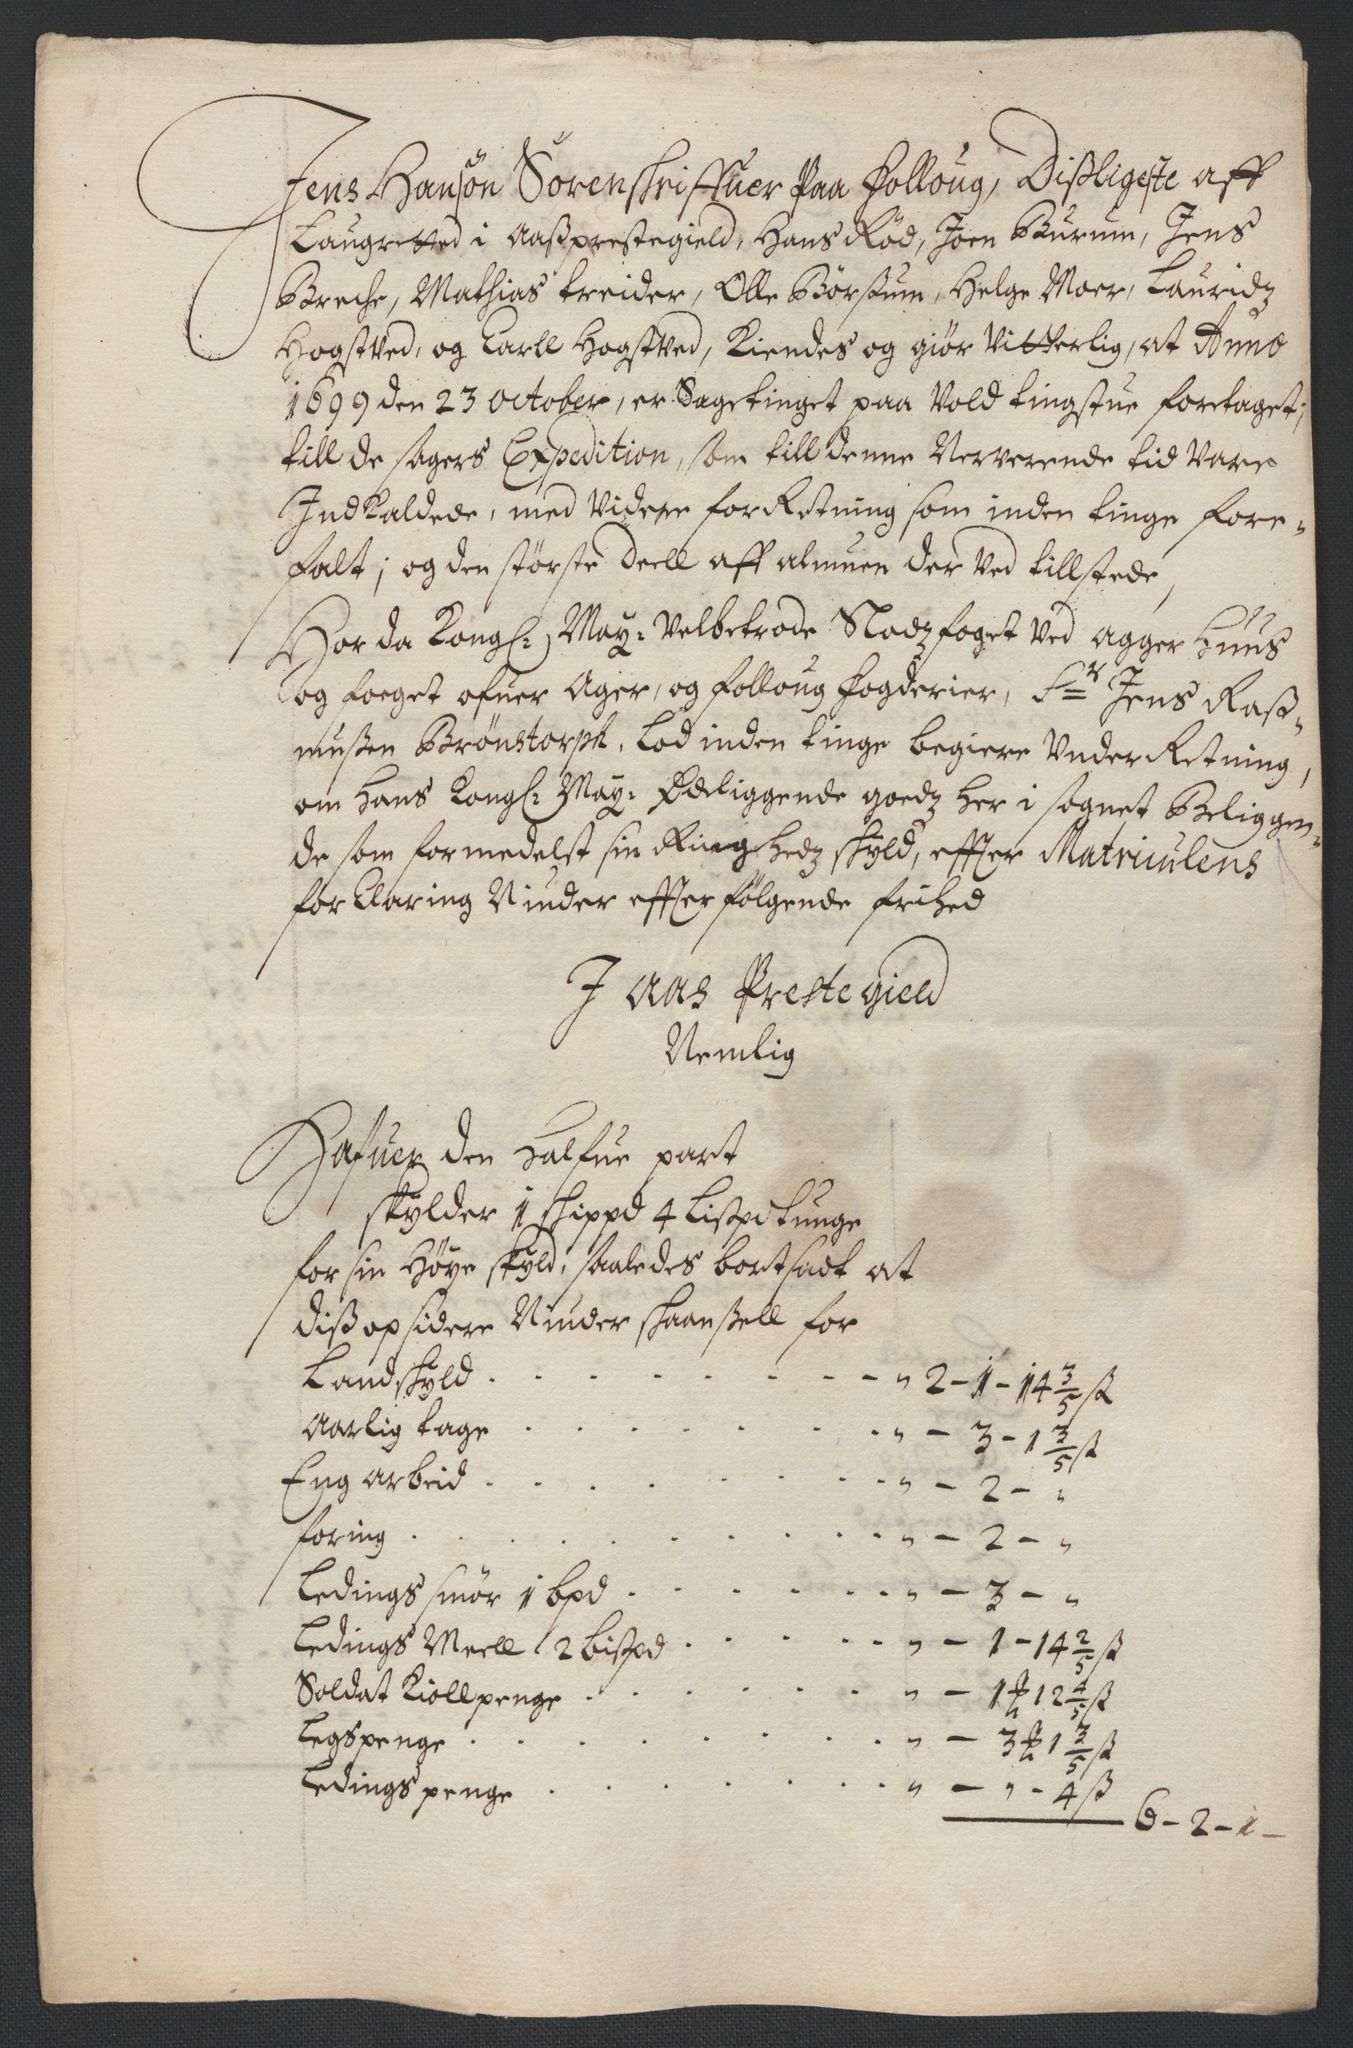 Jens Hansøn Sorenskriffuer Paa Folloug, Dißligeste aff
Laugretted i Aaßprestegield, Hans Rød, Joen Burum, Jens
Breche, Mathias Kreider, Olle Børsum, Helge Moer, Lauridz
Hogstved, og Carll Hogstved, Kiendes og giør Vitterlig, at Anno
1699 den 23 October, er Sagetinget paa Vold tingstue foretaget;
till de sagers Expedition, som till denne Nerverende tid Vare
Indkaldede, med Videre forretning som inden tinge fore-
falt; og den største deell aff almuen der Ved tillstede,
Hor da Kongl: May: Velbetrode Slodzfoget Ved Aggerhuus
og foeget ofuer Ager, og Folloug fogderier, Sr Jens Raß-
mußen Brønstorph, lod inden tinge begiere Underretning,
om Hans Kongl: May: Ødeliggende goedz her i sognet Beliggen-
de som formedelst sin Ringhedz skyld, effter Matriculens
forklaring Niuder effterfølgende frihed
J Aas Prestegield
Nemlig
Hafuer den halfue part
skylder 1 skippd 4 Lißpd tunge
for sin høye skyld, saaledes bortsadt at
diß opsidere Niuder skaanßell for
Landskyld . . . . . . . . - " 2 - 1 - 14 3/5 ß
Aarlig tage . . . . . . . " - 3 - 1 3/5 ß
Eng arbeid . . . . . . . " - 2 - "
foring . . . . . . . . . " - 2 - "
Ledings smør 1 bpd . . . . . " - 3 - "
Ledings Meell 2 bißpd . . . . " - 1 - 14 2/5 ß
Soldat Kiollpenge . . . . . . " - 1 ƶ 12 4/5 ß
Legspenge . . . . . . . . " - 3 ƶ 1 3/5 ß
Ledings penge . . . . . . . " - " - 4 ß
6 - 2 - 1 -